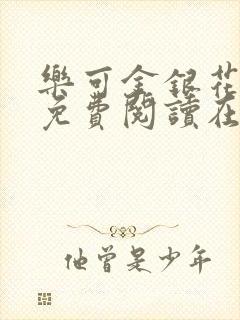 樂可金銀花
免費閱讀在
他曾是少年